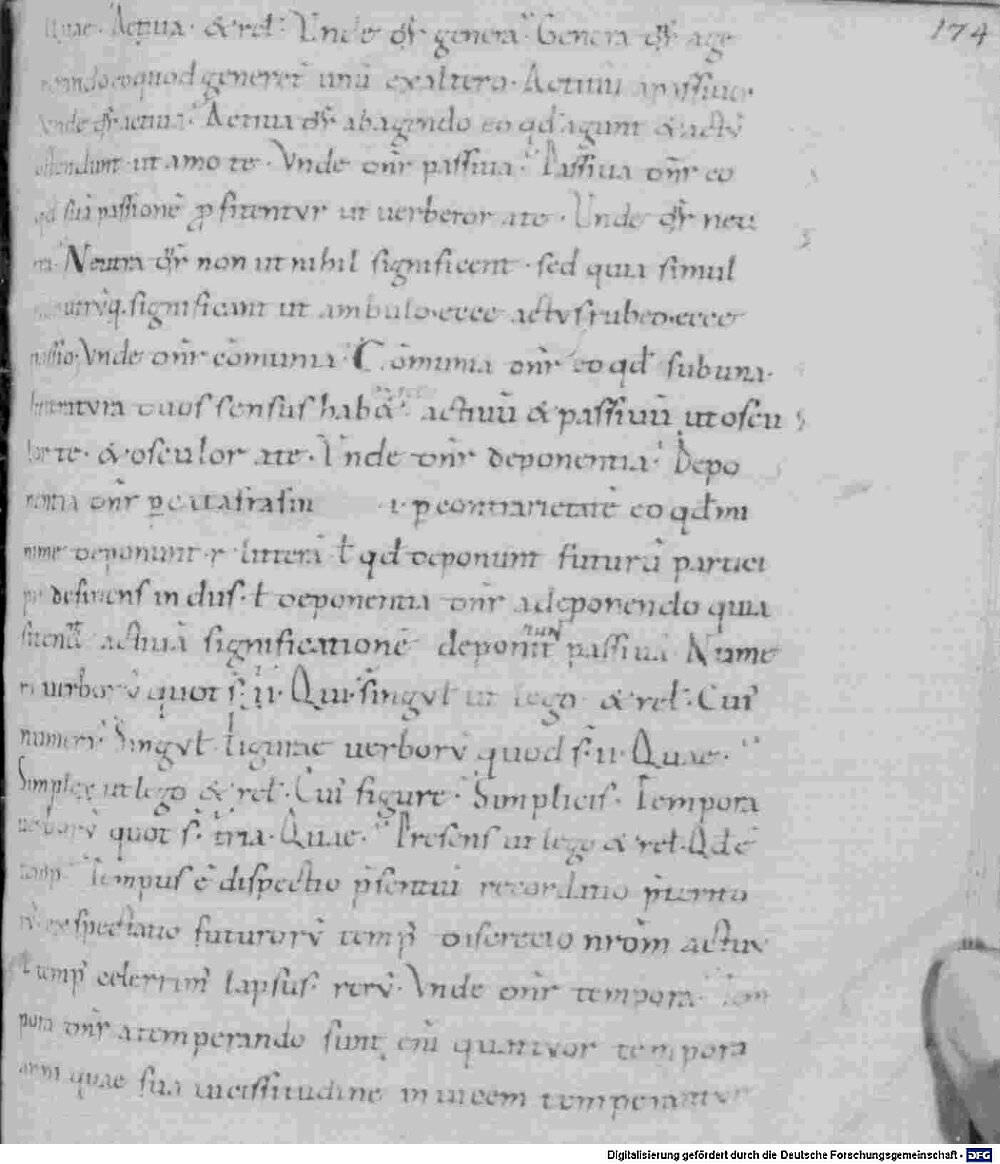 174
Quae. Actiua. & rel. Unde dr̄ genera. Genera dr̄ age
quod generet unū ex altero. Actiuū passiuū.
Unde dr̄ actiua. Actiua dr̄ ab agendo eo qd̄ agunt & actū
ostendunt ut amo te. Vnde dn̄r passiua. Passiua dn̄r eo
qd̄ suā passionē ꝓfitentur ut uerberor a te. Unde dr̄ neu
tra. Neutra dr̄ non ut nihil significent. sed quia simul
utrūq. significant ut ambulo. ecce actus rubeo. ecce
passio. Vnde dn̄r cōmunia. Cōmunia dn̄r eo qd̄ sub una.
duos sensus habā& actiuū & passiuū ut oscu
lor te. & osculor a te. Vnde dn̄r deponentia. Depo
nentia dn̄r i. p contrarietatē eo qd̄ mi
nime deponunt .r. litterā ł qd̄ deponunt futurū partici
pii desinens in dus. ł deponentia dn̄r a deponendo quia
actiuā significationē deponunt passiua Nume
ri uerborū quot s̄. ii. Qui. singuł ut lego & rel. Cui'
numeri. Singuł. Figurae uerborū quod s̄. ii. Quae.
Simplex ut lego & rel. Cui' figurę. Simplicis. Tempora
uerborū quot s̄. tria. Quae. Presens ut lego & rel. Qd ē
temp'. Tempus ē dispectio p̄sentiū recordatio p̄terito
rū exspectatio futurorū temp' discretio nr̄om actuū
ł temp' celerrim' lapsus rerū. Vnde dn̄r tempora. Tem
pora dn̄r a temperando sunt eni quattuor tempora
anni quae sua uicissitudine inuicem temperantur